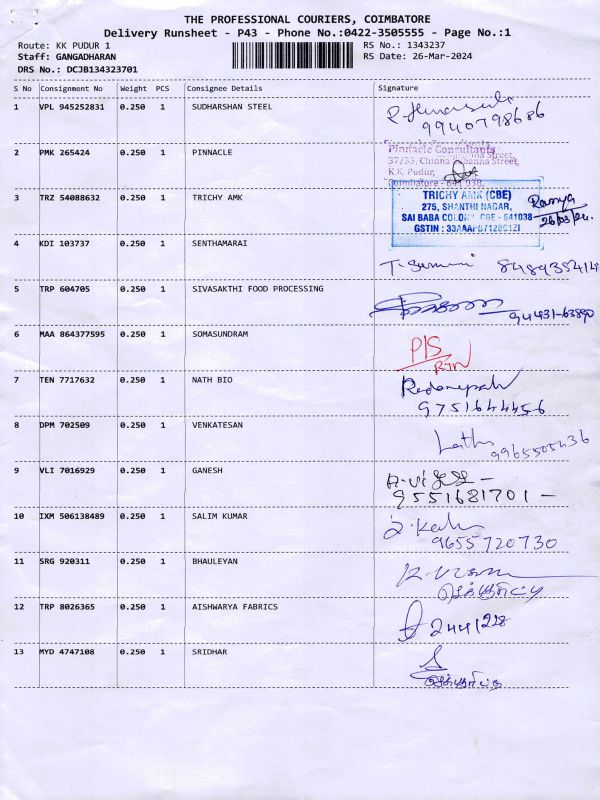 THE PROFESSIONAL COURIERS, COIMBATORE
Delivery Runsheet - P43 - Phone No.:0422-3505555 - Page No.:1
Route: KK PUDUR 1 RS No.: 1343237
Staff: GANGADHARAN RS Date: 26-Mar-2024
DRS No.: DCJB134323701
S No Consignment No Weight PCS Consignee Details Signature
1 VPL 945252831 0.250 1 SUDHARSHAN STEEL
9940798686
2 PMK 265424 0.250 1 PINNACLE
Pinnacle Consultants
37/33, Chinna Street,
K.K. Pudur,
Coimbatore - 641 038.
3 TRZ 54088632 0.250 1 TRICHY AMK
TRICHY AMK (CBE)
275, SHANTHI NAGAR,
SAI BABA COLONY, CBE - 641038
GSTIN :
Ramya
26/03/24.
4 KDI 103737 0.250 1 SENTHAMARAI
8489435414
5 TRP 604705 0.250 1 SIVASAKTHI FOOD PROCESSING
94431-63890
6 MAA 864377595 0.250 1 SOMASUNDRAM
P/S
RTN
7 TEN 7717632 0.250 1 NATH BIO
9751644456
8 DPM 702509 0.250 1 VENKATESAN
9965505436
9 VLI 7016929 0.250 1 GANESH
9551681701 -
10 IXM 506138489 0.250 1 SALIM KUMAR
9655720730
11 SRG 920311 0.250 1 BHAULEYAN
செக்யூரிட்டி
12 TRP 8026365 0.250 1 AISHWARYA FABRICS
2441228
13 MYD 4747108 0.250 1 SRIDHAR